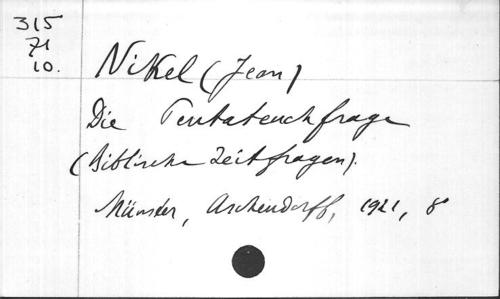 315
71
10.
Nikel (Jean)
Die Pentateuchfrage
(Biblische Zeitfragen).
Münster, Aschendorff, 1921, 8°